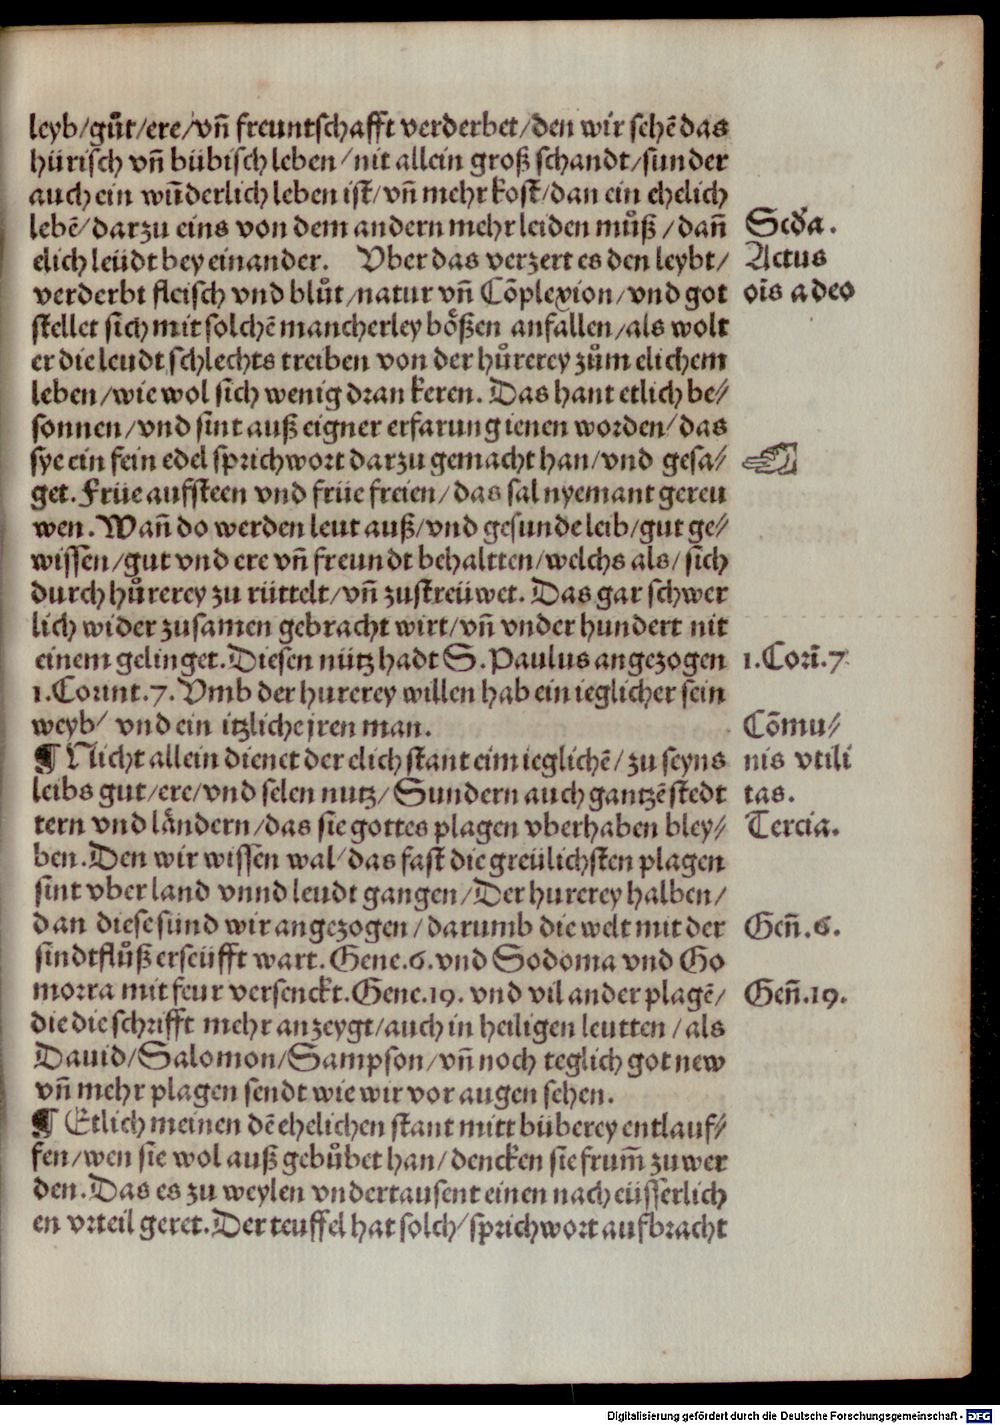 leyb/gůt/ere/vñ freuntschafft verderbet/den wir sehē das
hürisch vñ bübisch leben/nit allein groß schandt/sunder
auch ein wūderlich leben ist/vñ mehr kost/dan ein ehelich
lebē/darzu eins von dem andern mehr leiden můß/dañ
elich leüdt bey einander. Vber das verzert es den leybt/
verderbt fleisch vnd blůt/natur vñ Cōplexion/vnd got
stellet sich mit solchē mancherley bößen anfallen/als wolt
er die leudt schlechts treiben von der hůrerey zům elichem
leben/wie wol sich wenig dran keren. Das hant etlich be⸗
sonnen/vnd sint auß eigner erfarung ienen worden/das
sye ein fein edel sprichwort darzu gemacht han/vnd gesa⸗
get. Früe aufsteen vnd früe freien/das sal nyemant gereu
wen. Wañ do werden leut auß/vnd gesunde leib/gut ge⸗
wissen/gut vnd ere vñ freundt behaltten/welchs als/sich
durch hůrerey zu rüttelt/vñ zustreüwet. Das gar schwer
lich wider zusamen gebracht wirt/vñ vnder hundert nit
einem gelinget. Diesen nütz hadt S. Paulus angezogen
1. Corint. 7. Vmb der hurerey willen hab ein ieglicher sein
weyb/ vnd ein itzliche jren man.
¶ Nicht allein dienet der elich stant eim ieglichē/zu seyns
leibs gut/ere/vnd selen nutz/Sundern auch gantzē stedt
tern vnd ländern/das sie gottes plagen vberhaben bley⸗
ben. Den wir wissen wal/das fast die greülichsten plagen
sint vber land vnnd leudt gangen/Der hurerey halben/
dan diese sünd wir angezogen/darumb die welt mit der
sindtflůß erseüfft wart. Gene. 6. vnd Sodoma vnd Go
morra mit feur versenckt. Gene. 19. vnd vil ander plagē/
die die schrifft mehr anzeygt/auch in heiligen leutten/als
Dauid/Salomon/Sampson/vñ noch teglich got new
vñ mehr plagen sendt wie wir vor augen sehen.
¶ Etlich meinen dē ehelichen stant mitt büberey entlauf⸗
fen/wen sie wol auß gebůbet han/dencken sie frum̄ zu wer
den. Das es zu weylen vndertausent einen nach eüsserlich
en vrteil geret. Der teuffel hat solch/sprichwort aufbracht
Actus
oīs adeo
1. Corī. 7
Cōmu⸗
nis vtili
tas.
Tercia.
Geñ. 6.
Geñ. 19.
Digitalisierung gefördert durch die Deutsche Forschungsgemeinschaft - DFG